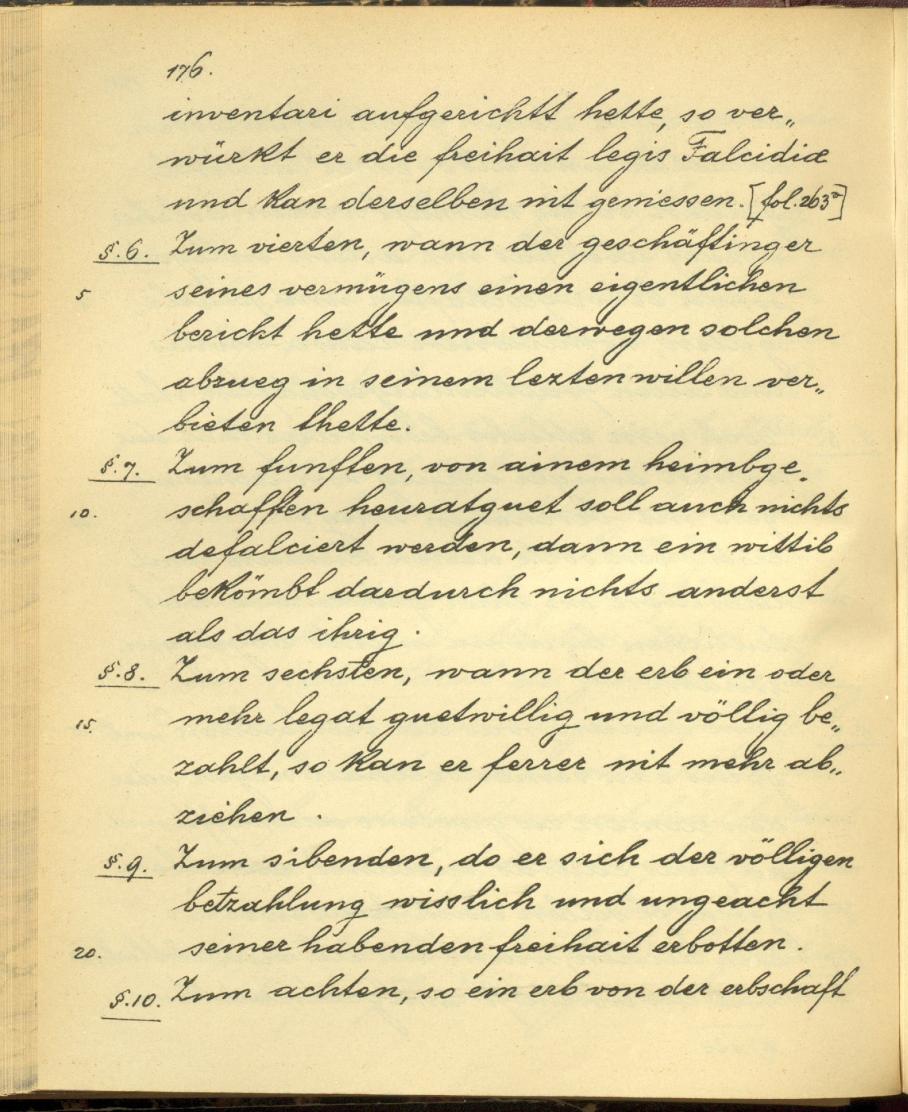 176.
inventari aufgerichtt hette, so ver„
würkt er die freihait legis Falcidiæ
und kan derselben nit geniessen. [fol. 263ª]
§. 6. Zum vierten, wann der geschäftinger
5 seines vermügens einen eigentlichen
bericht hette und derwegen solchen
abzueg in seinem lezten willen ver„
bieten thette.
§. 7. Zum funften, von ainem heimbge„
10. schafften heuratguet soll auch nichts
defalciert werden, dann ein wittib
bekömbt dardurch nichts anderst
als das ihrig.
§. 8. Zum sechsten, wann der erb ein oder
15. mehr legat guetwillig und völlig be„
zahlt, so kan er ferrer nit mehr ab„
ziehen.
§. 9. Zum sibenden, do er sich der völligen
betzahlung wisslich und ungeacht
20. seiner habenden freihait erbotten.
§. 10. Zum achten, so ein erb von der erbschaft